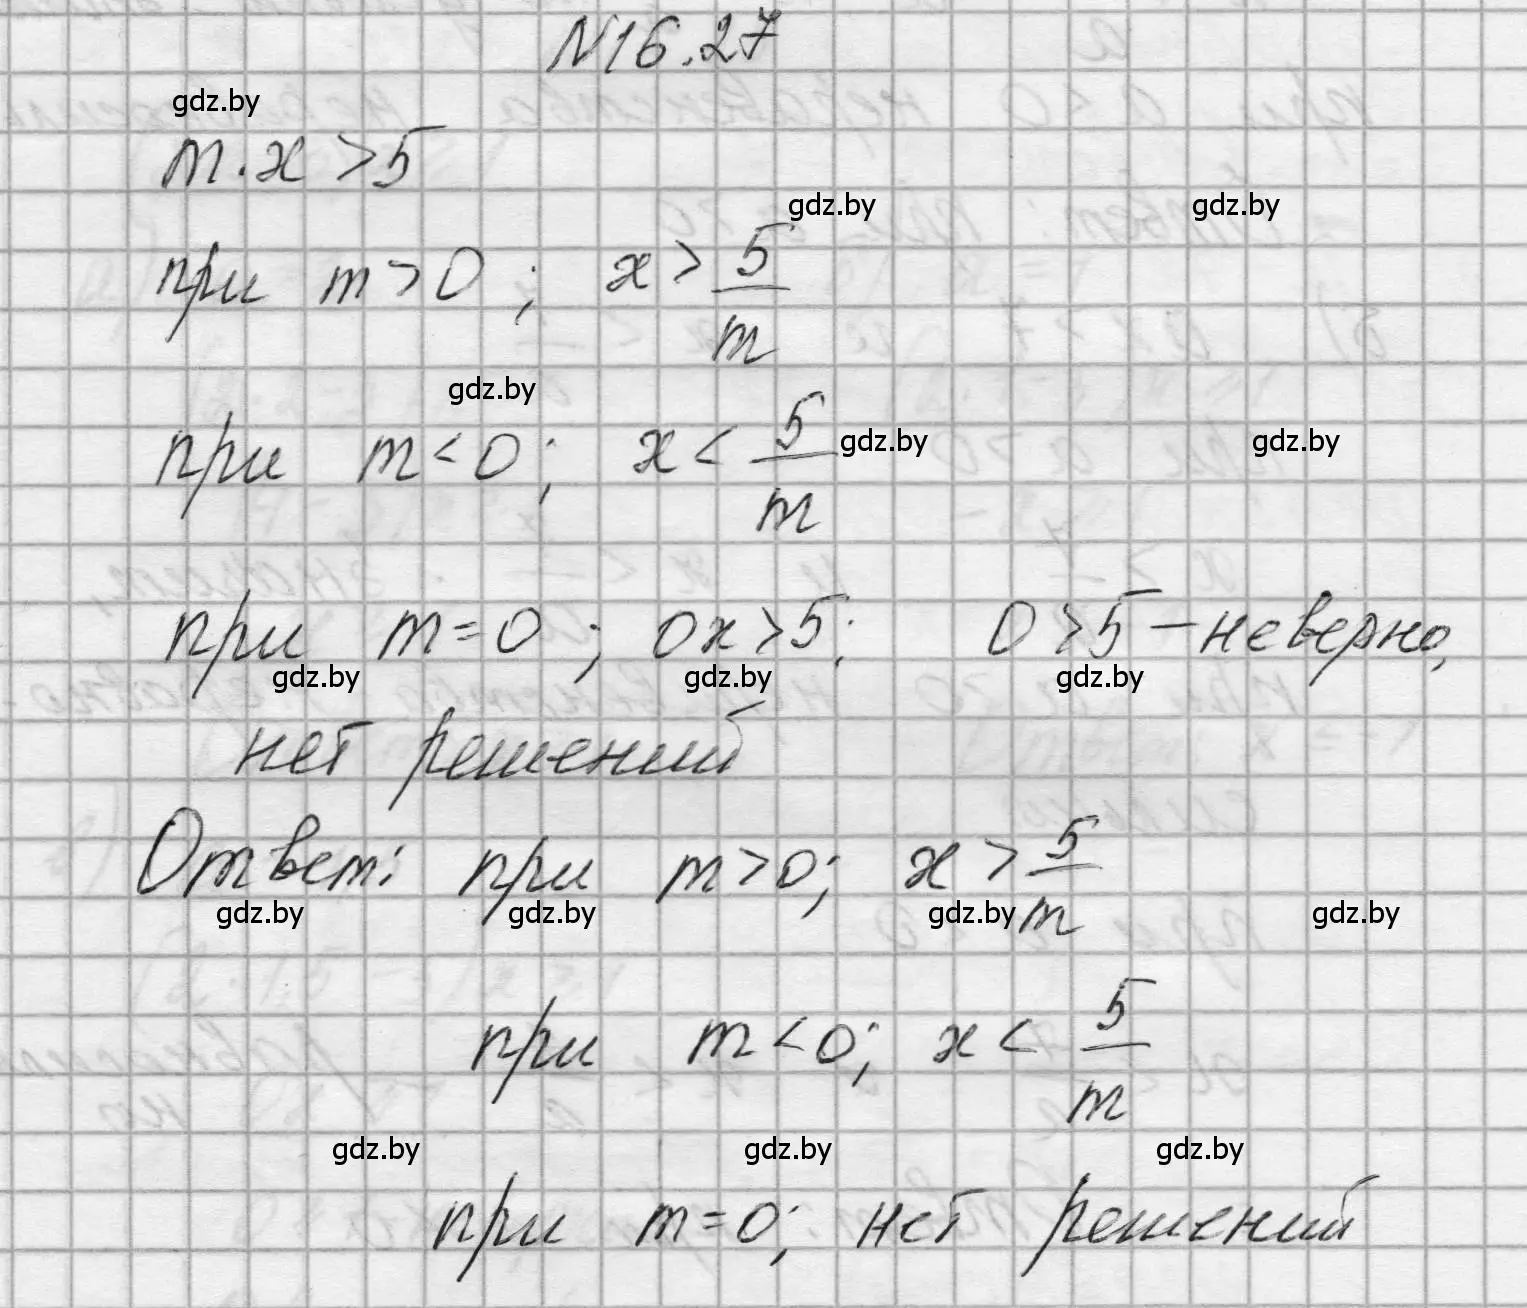 N16.27
gdz.by
m·x>5
gdz.by gdz.by
при m>0; x> 5/m
gdz.by
при m<0; x< 5/m
gdz.by gdz.by
при m=0; 0x>5; 0>5 – неверно,
gdz.by gdz.by gdz.by
нет решений
Ответ: при m>0; x> 5/m
gdz.by gdz.by gdz.by gdz.by
при m<0; x< 5/m
gdz.by gdz.by gdz.by
при m=0; нет решений